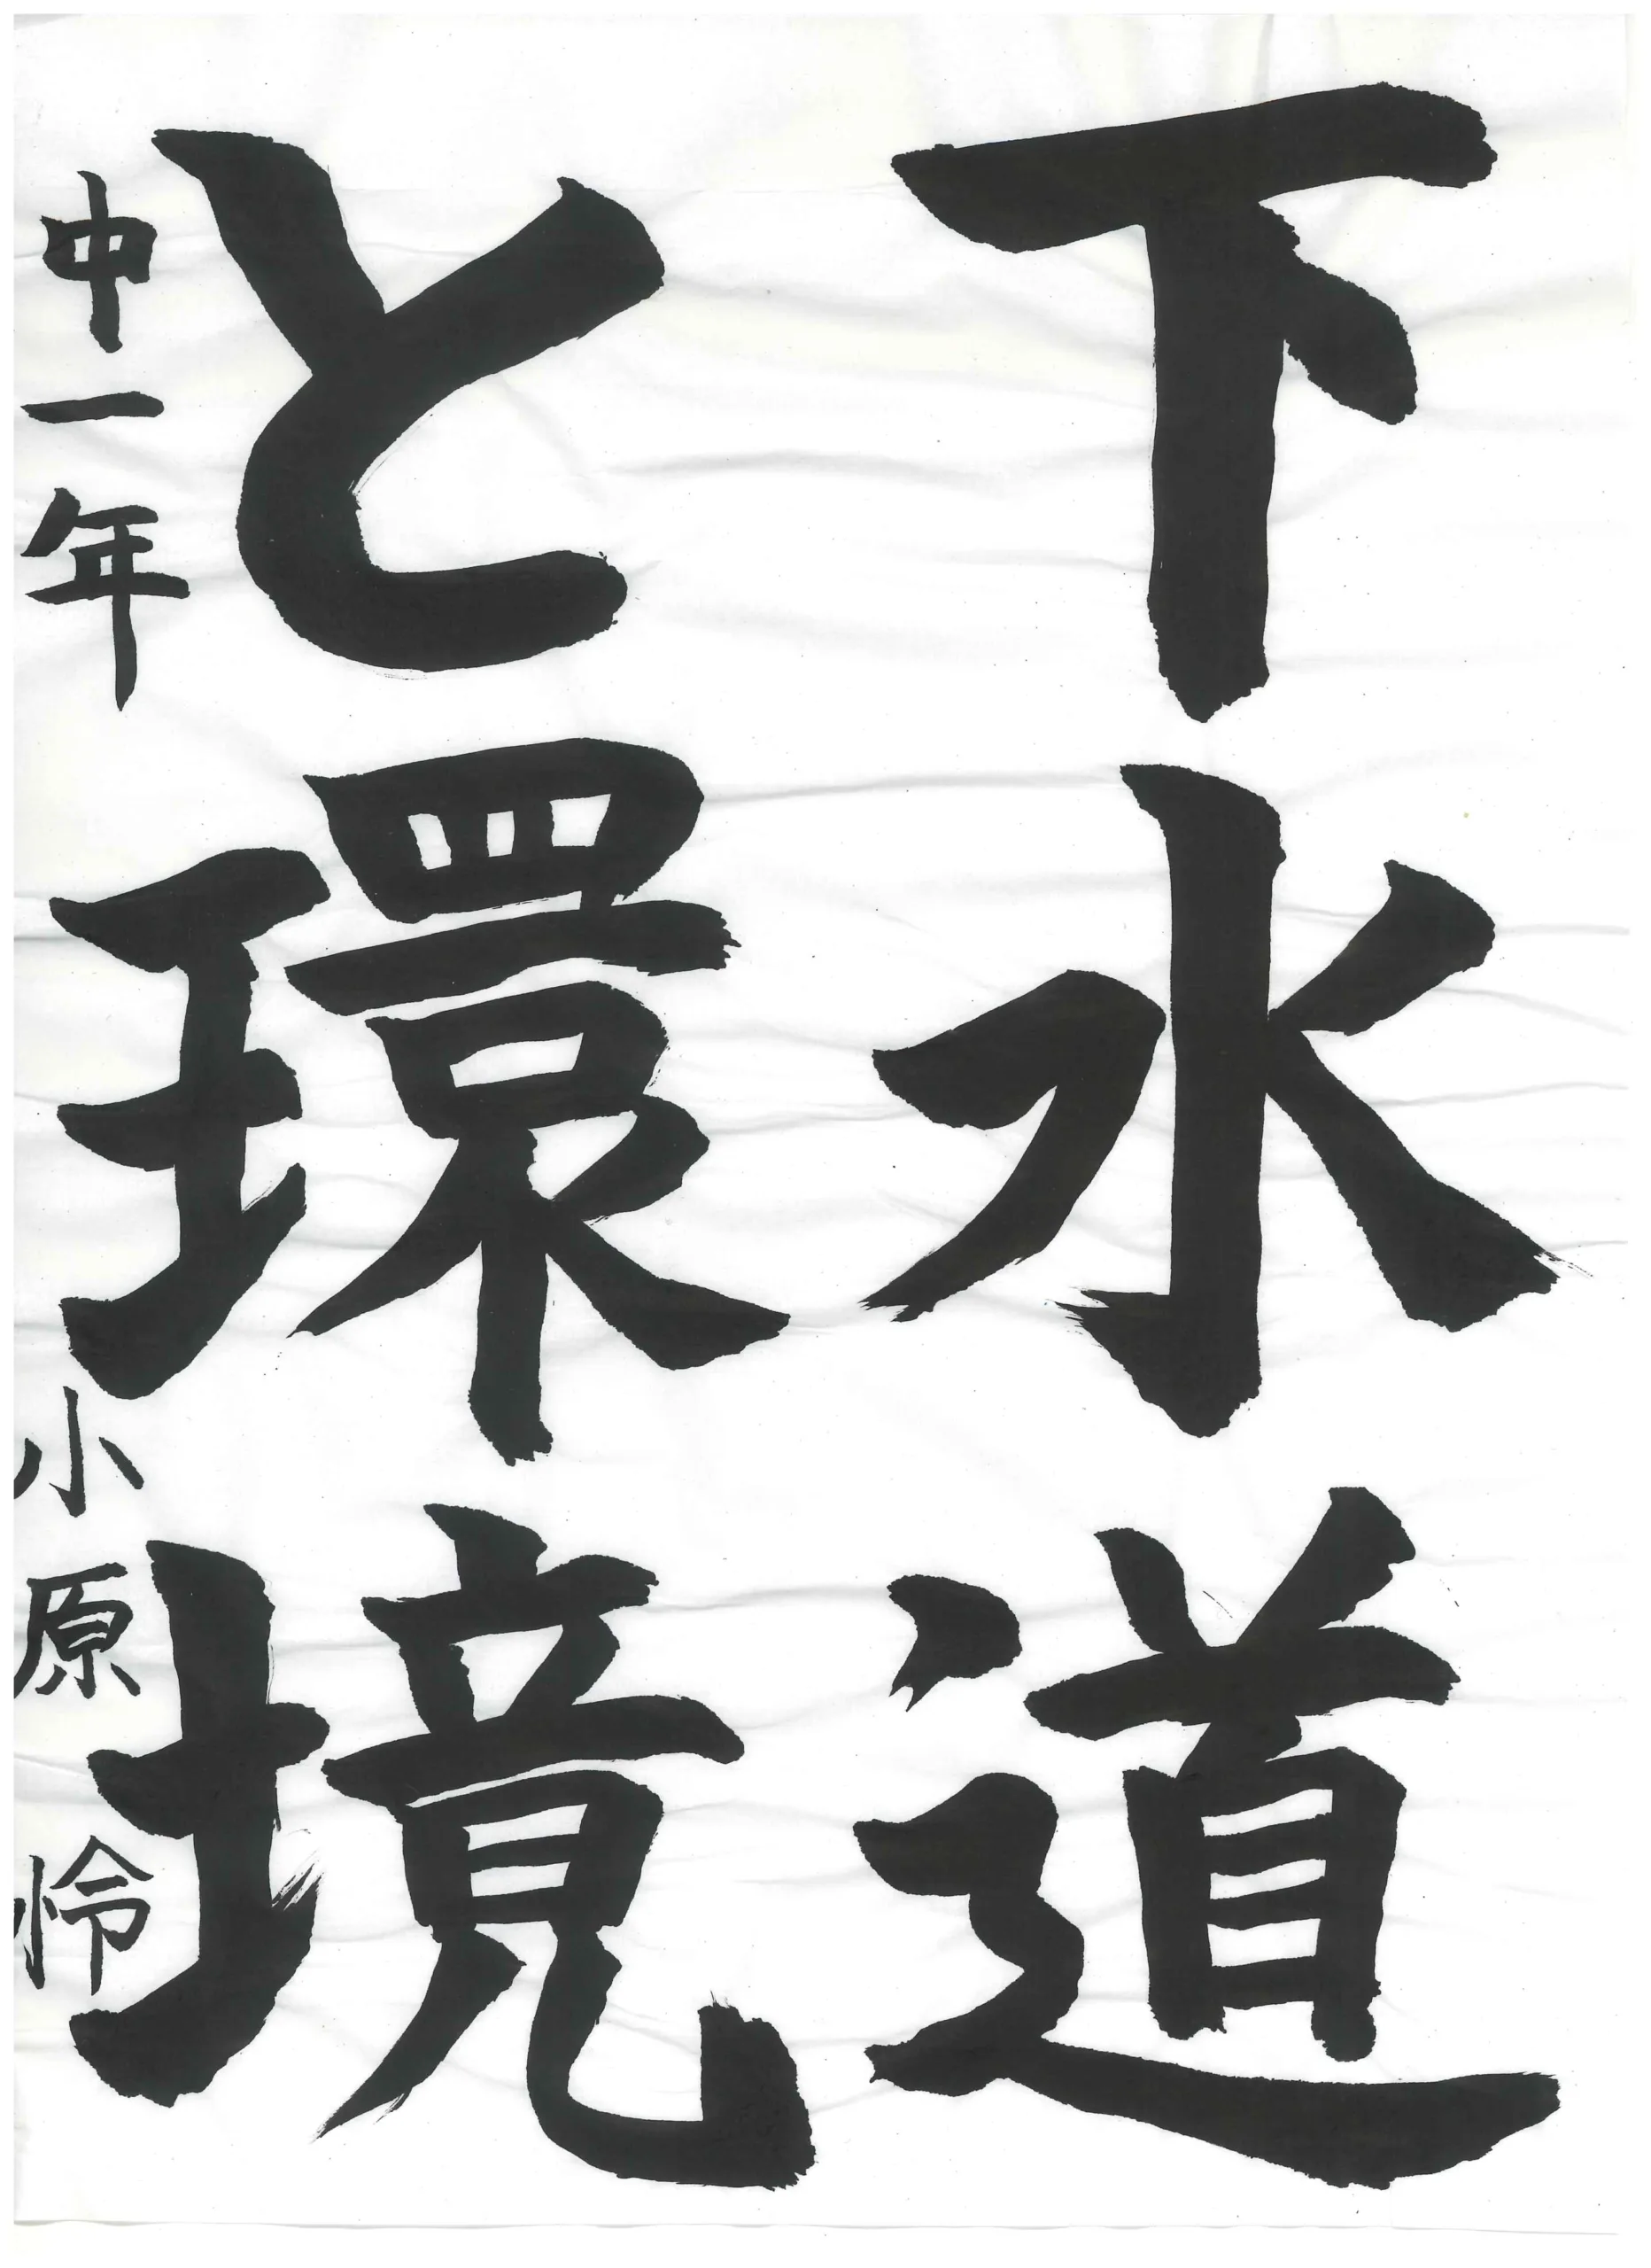 下水道
と環境
中一年 小原怜